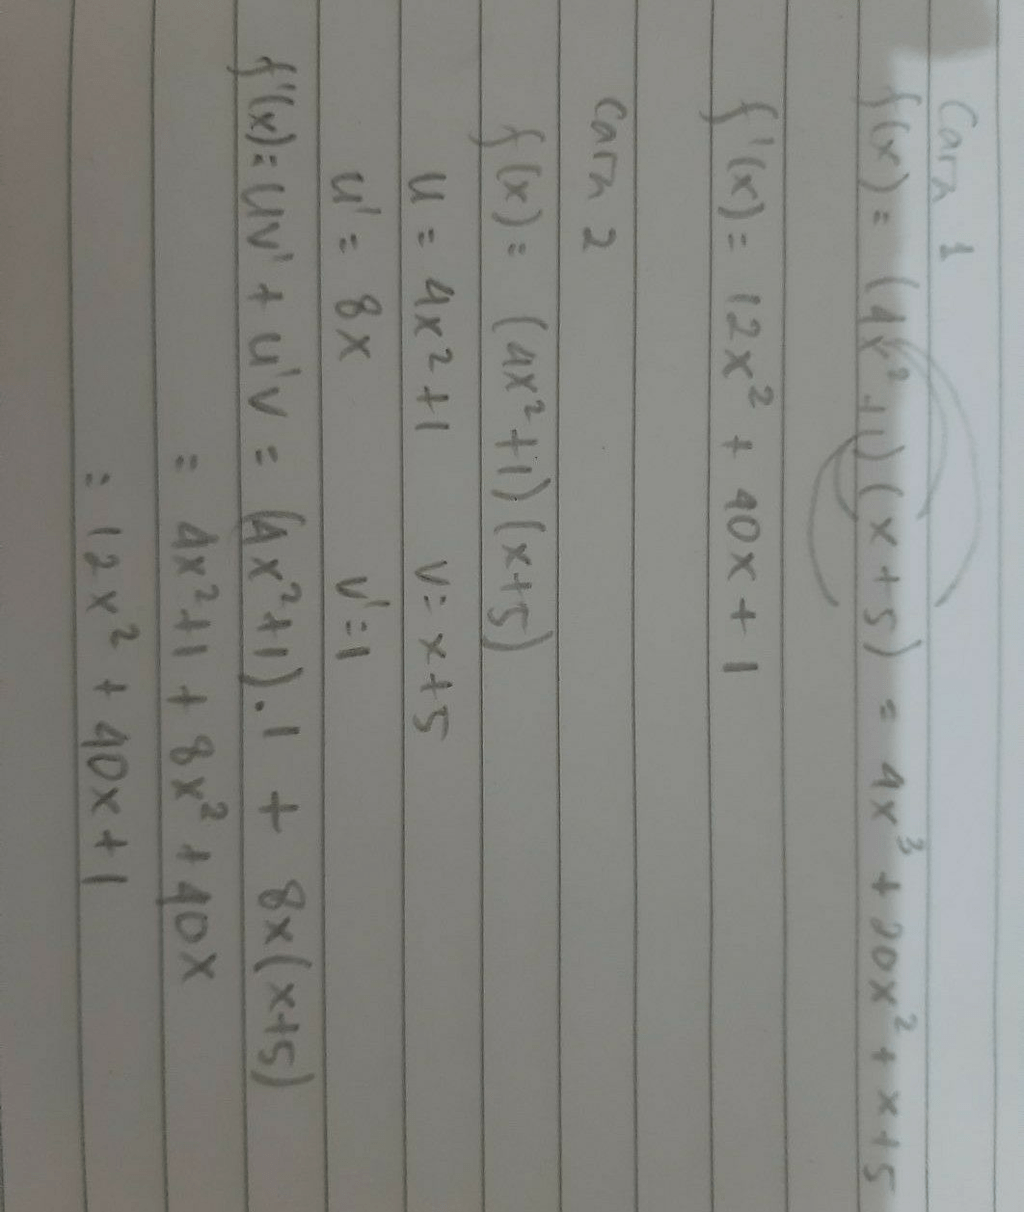 Cara 1
f(x) = (4x²+1)(x+5) = 4x³ + 20x² + x+5
f'(x) = 12x² + 40x + 1
Cara 2
f(x) = (4x²+1)(x+5)
u = 4x²+1 v = x+5
u' = 8x v' = 1
f'(x) = uv' + u'v = (4x²+1).1 + 8x(x+5)
= 4x²+1 + 8x² + 40x
= 12x² + 40x + 1